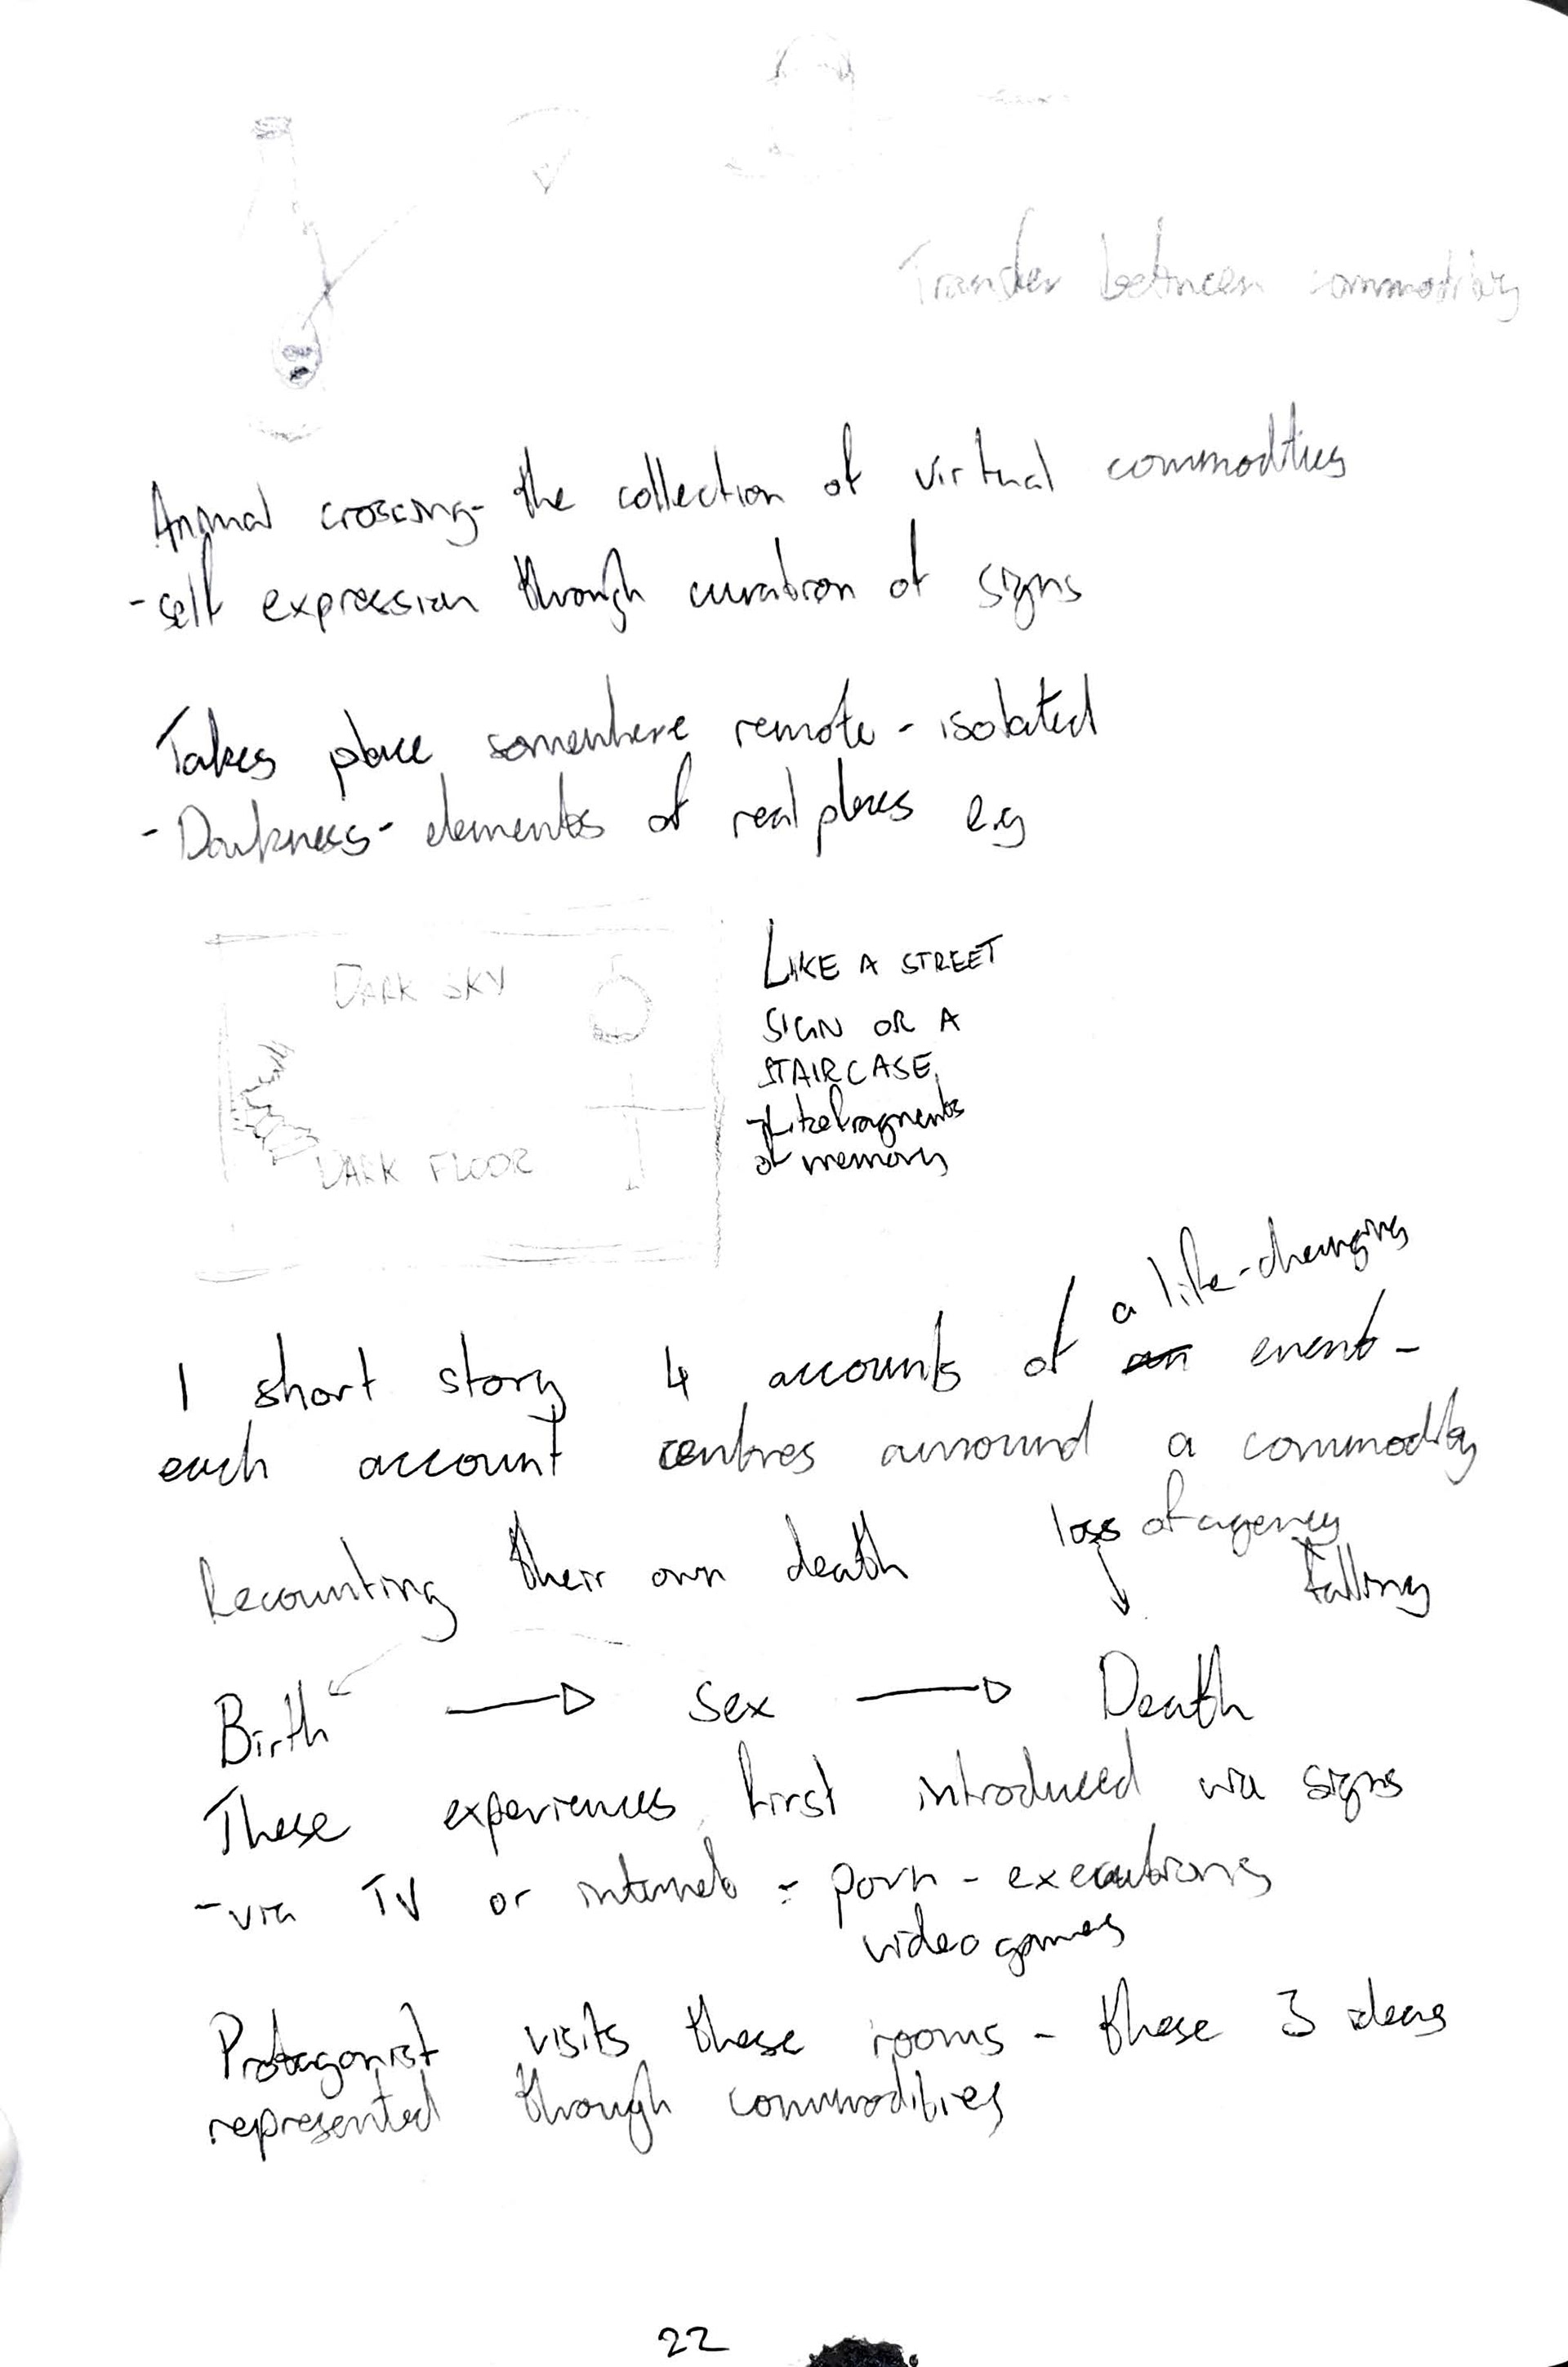 Transfer between commodities
Animal crossing- the collection of virtual commodities
-self expression through curation of signs
Takes place somewhere remote - isolated
-Darkness- elements of real places e.g
DARK SKY
DARK FLOOR
LIKE A STREET
SIGN OR A
STAIRCASE
-Like fragments
of memory
a life-changing
1 short story 4 accounts of an event-
each account centres arround a commodity
loss of agency
falling
Recounting their own death
Birth → Sex → Death
These experiences first introduced via signs
-via TV or internet - porn - executions
video games
Protagonist visits these rooms - these 3 ideas
represented through commodities
22